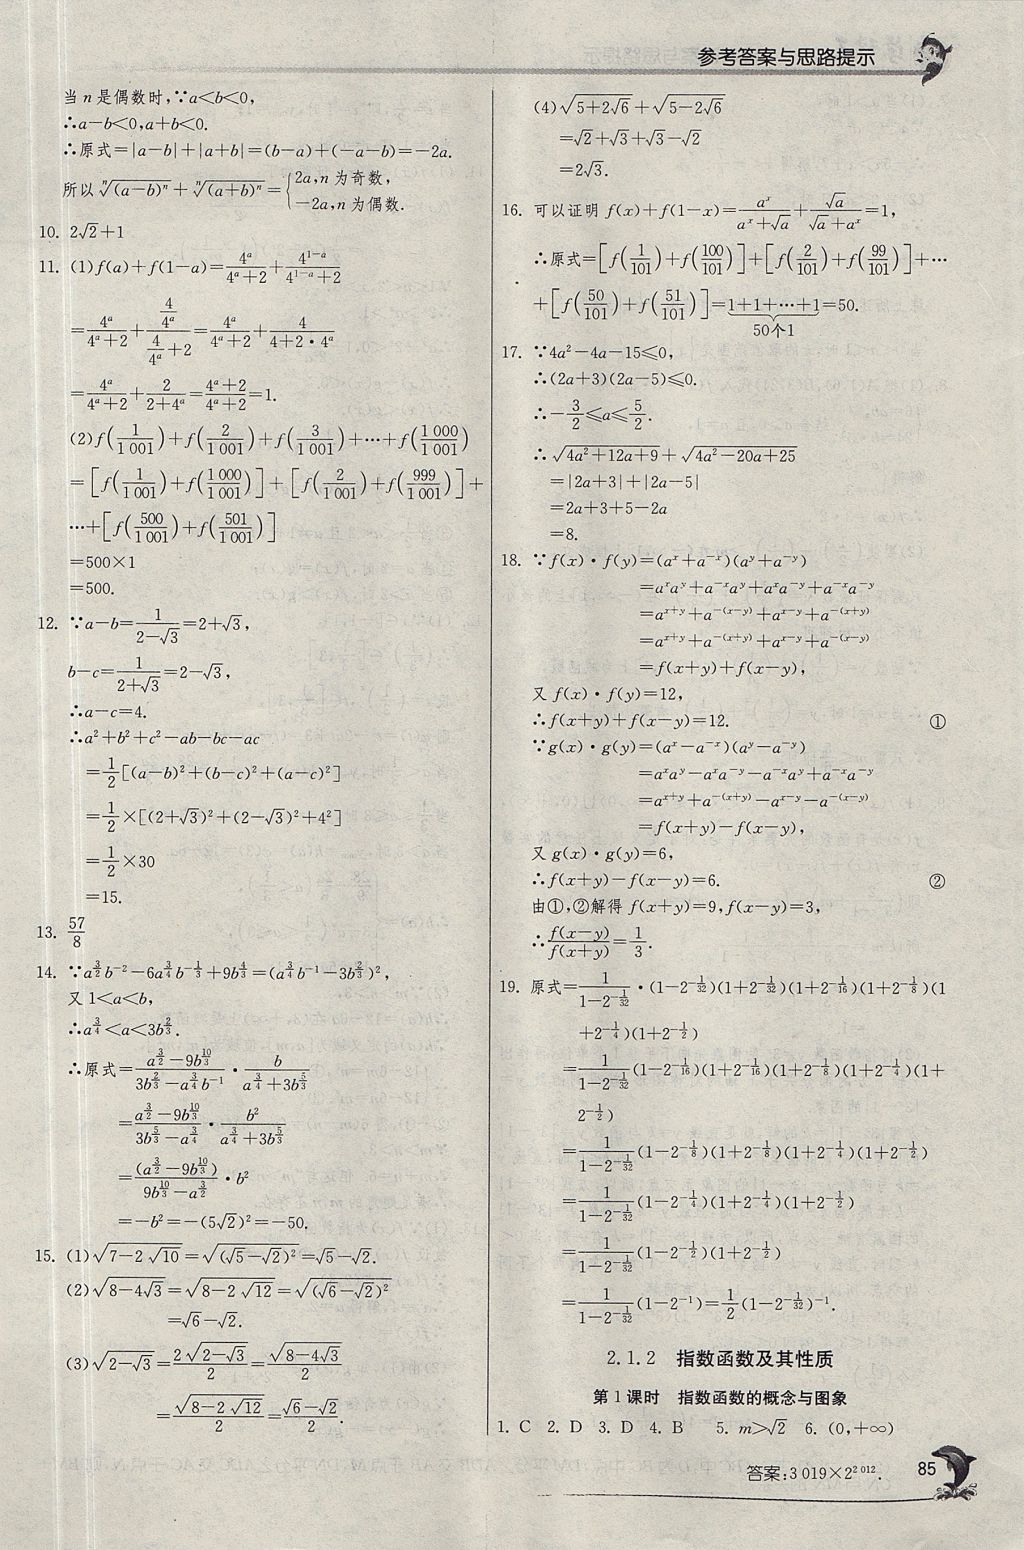 参考答案与思路提示
当 n 是偶数时,∵a<b<0,
∴a-b<0,a+b<0.
∴原式=|a-b|+|a+b|=(b-a)+(-a-b)=-2a.
所以 \sqrt[n]{(a-b)^n}+\sqrt[n]{(a+b)^n}={2a,n 为奇数, -2a,n 为偶数.
10. 2√2+1
11. (1)f(a)+f(1-a)=\frac{4^a}{4^a+2}+\frac{4^{1-a}}{4^{1-a}+2}
=\frac{4^a}{4^a+2}+\frac{\frac{4}{4^a}}{\frac{4}{4^a}+2}=\frac{4^a}{4^a+2}+\frac{4}{4+2·4^a}
=\frac{4^a}{4^a+2}+\frac{2}{2+4^a}=\frac{4^a+2}{4^a+2}=1.
(2)f(\frac{1}{1 001})+f(\frac{2}{1 001})+f(\frac{3}{1 001})+⋯+f(\frac{1 000}{1 001})
=[f(\frac{1}{1 001})+f(\frac{1 000}{1 001})]+[f(\frac{2}{1 001})+f(\frac{999}{1 001})]+
⋯+[f(\frac{500}{1 001})+f(\frac{501}{1 001})]
=500×1
=500.
12. ∵a-b=\frac{1}{2-√3}=2+√3,
b-c=\frac{1}{2+√3}=2-√3,
∴a-c=4.
∴a²+b²+c²-ab-bc-ac
=\frac{1}{2}[(a-b)²+(b-c)²+(a-c)²]
=\frac{1}{2}×[(2+√3)²+(2-√3)²+4²]
=\frac{1}{2}×30
=15.
13. \frac{57}{8}
14. ∵a^{\frac{3}{2}}b^{-2}-6a^{\frac{3}{4}}b^{-\frac{1}{3}}+9b^{\frac{4}{3}}=(a^{\frac{3}{4}}b^{-1}-3b^{\frac{2}{3}})²,
又 1<a<b,
∴a^{\frac{3}{4}}<a<3b^{\frac{2}{3}}.
∴原式=\frac{a^{\frac{3}{2}}-9b^{\frac{10}{3}}}{3b^{\frac{2}{3}}-a^{\frac{3}{4}}b^{-1}}·\frac{b}{a^{\frac{3}{4}}+3b^{\frac{5}{3}}}
=\frac{a^{\frac{3}{2}}-9b^{\frac{10}{3}}}{3b^{\frac{5}{3}}-a^{\frac{3}{4}}}·\frac{b²}{a^{\frac{3}{4}}+3b^{\frac{5}{3}}}
=\frac{(a^{\frac{3}{2}}-9b^{\frac{10}{3}})}{9b^{\frac{10}{3}}-a^{\frac{3}{2}}}·b²
=-b²=-(5√2)²=-50.
15. (1)\sqrt{7-2\sqrt{10}}=\sqrt{(√5-√2)²}=√5-√2.
(2)\sqrt{8-4√3}=\sqrt{8-2\sqrt{12}}=\sqrt{(√6-√2)²}
=√6-√2.
(3)\sqrt{2-√3}=\frac{2\sqrt{2-√3}}{2}=\frac{\sqrt{8-4√3}}{2}
=\frac{\sqrt{8-2\sqrt{12}}}{2}=\frac{√6-√2}{2}.
(4)\sqrt{5+2√6}+\sqrt{5-2√6}
=√2+√3+√3-√2
=2√3.
16. 可以证明 f(x)+f(1-x)=\frac{a^x}{a^x+√a}+\frac{√a}{√a+a^x}=1,
∴原式=[f(\frac{1}{101})+f(\frac{100}{101})]+[f(\frac{2}{101})+f(\frac{99}{101})]+⋯
+[f(\frac{50}{101})+f(\frac{51}{101})]=1+1+⋯+1=50.
50个1
17. ∵4a²-4a-15≤0,
∴(2a+3)(2a-5)≤0.
∴-\frac{3}{2}≤a≤\frac{5}{2}.
∴\sqrt{4a²+12a+9}+\sqrt{4a²-20a+25}
=|2a+3|+|2a-5|
=2a+3+5-2a
=8.
18. ∵f(x)·f(y)=(a^x+a^{-x})(a^y+a^{-y})
=a^xa^y+a^{-x}a^y+a^xa^{-y}+a^{-x}a^{-y}
=a^{x+y}+a^{-(x-y)}+a^{x-y}+a^{-(x+y)}
=a^{x+y}+a^{-(x+y)}+a^{x-y}+a^{-(x-y)}
=f(x+y)+f(x-y),
又 f(x)·f(y)=12,
∴f(x+y)+f(x-y)=12. ①
∵g(x)·g(y)=(a^x-a^{-x})(a^y-a^{-y})
=a^xa^y-a^xa^{-y}-a^{-x}a^y+a^{-x}a^{-y}
=a^{x+y}+a^{-(x+y)}-a^{x-y}-a^{-(x-y)}
=f(x+y)-f(x-y),
又 g(x)·g(y)=6,
∴f(x+y)-f(x-y)=6. ②
由①,②解得 f(x+y)=9,f(x-y)=3,
∴\frac{f(x-y)}{f(x+y)}=\frac{1}{3}.
19. 原式=\frac{1}{1-2^{-\frac{1}{32}}}·(1-2^{-\frac{1}{32}})(1+2^{-\frac{1}{32}})(1+2^{-\frac{1}{16}})(1+2^{-\frac{1}{8}})(1
+2^{-\frac{1}{4}})(1+2^{-\frac{1}{2}})
=\frac{1}{1-2^{-\frac{1}{32}}}(1-2^{-\frac{1}{16}})(1+2^{-\frac{1}{16}})(1+2^{-\frac{1}{8}})(1+2^{-\frac{1}{4}})(1+
2^{-\frac{1}{2}})
=\frac{1}{1-2^{-\frac{1}{32}}}(1-2^{-\frac{1}{8}})(1+2^{-\frac{1}{8}})(1+2^{-\frac{1}{4}})(1+2^{-\frac{1}{2}})
=\frac{1}{1-2^{-\frac{1}{32}}}(1-2^{-\frac{1}{4}})(1+2^{-\frac{1}{4}})(1+2^{-\frac{1}{2}})
=\frac{1}{1-2^{-\frac{1}{32}}}(1-2^{-\frac{1}{2}})(1+2^{-\frac{1}{2}})
=\frac{1}{1-2^{-\frac{1}{32}}}(1-2^{-1})=\frac{1}{2}(1-2^{-\frac{1}{32}})^{-1}.
2.1.2 指数函数及其性质
第 1 课时 指数函数的概念与图象
1. C 2. D 3. D 4. B 5. m>√2 6. (0,+∞)
答案:3 019×2^{2 012}.
85